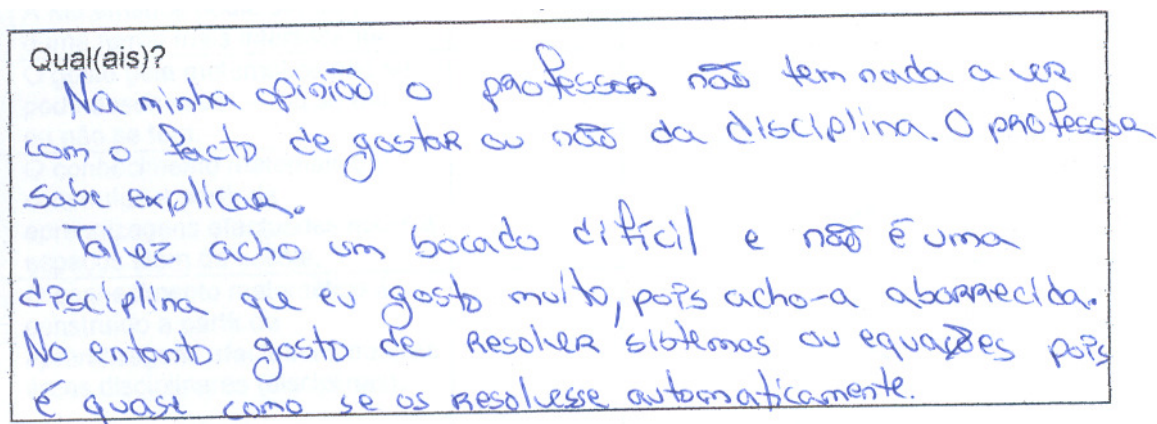 Qual(ais)?
Na minha opinião o professor não tem nada a ver
com o facto de gostar ou não da disciplina. O professor
sabe explicar.
Talvez acho um bocado difícil e não é uma
disciplina que eu gosto muito, pois acho-a aborrecida.
No entanto gosto de resolver sistemas ou equações pois
é quase como se os resolvesse automaticamente.